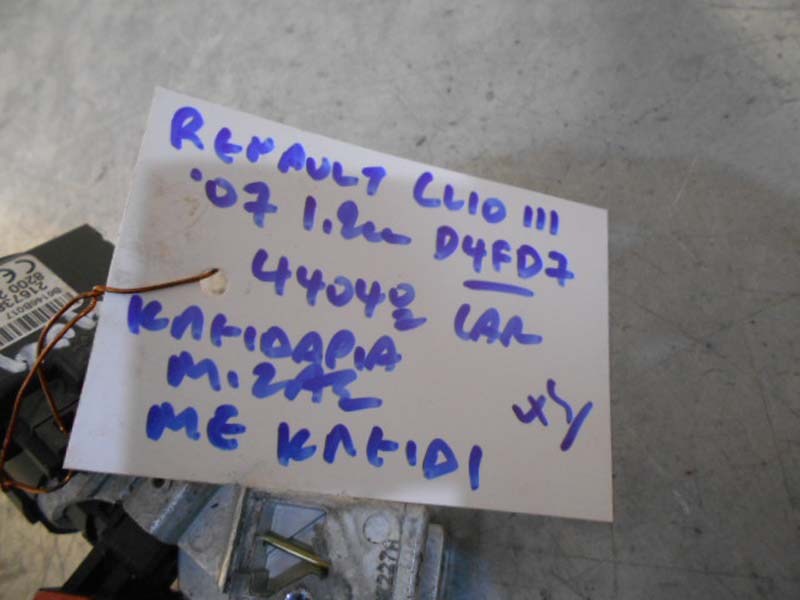 RENAULT CLIO III
'07 1.2cc D4FD7
44040 CAR
ΚΛΕΙΔΑΡΙΑ
ΜΙΖΑΣ
ΜΕ ΚΛΕΙΔΙ
CE
2167
8200
227A